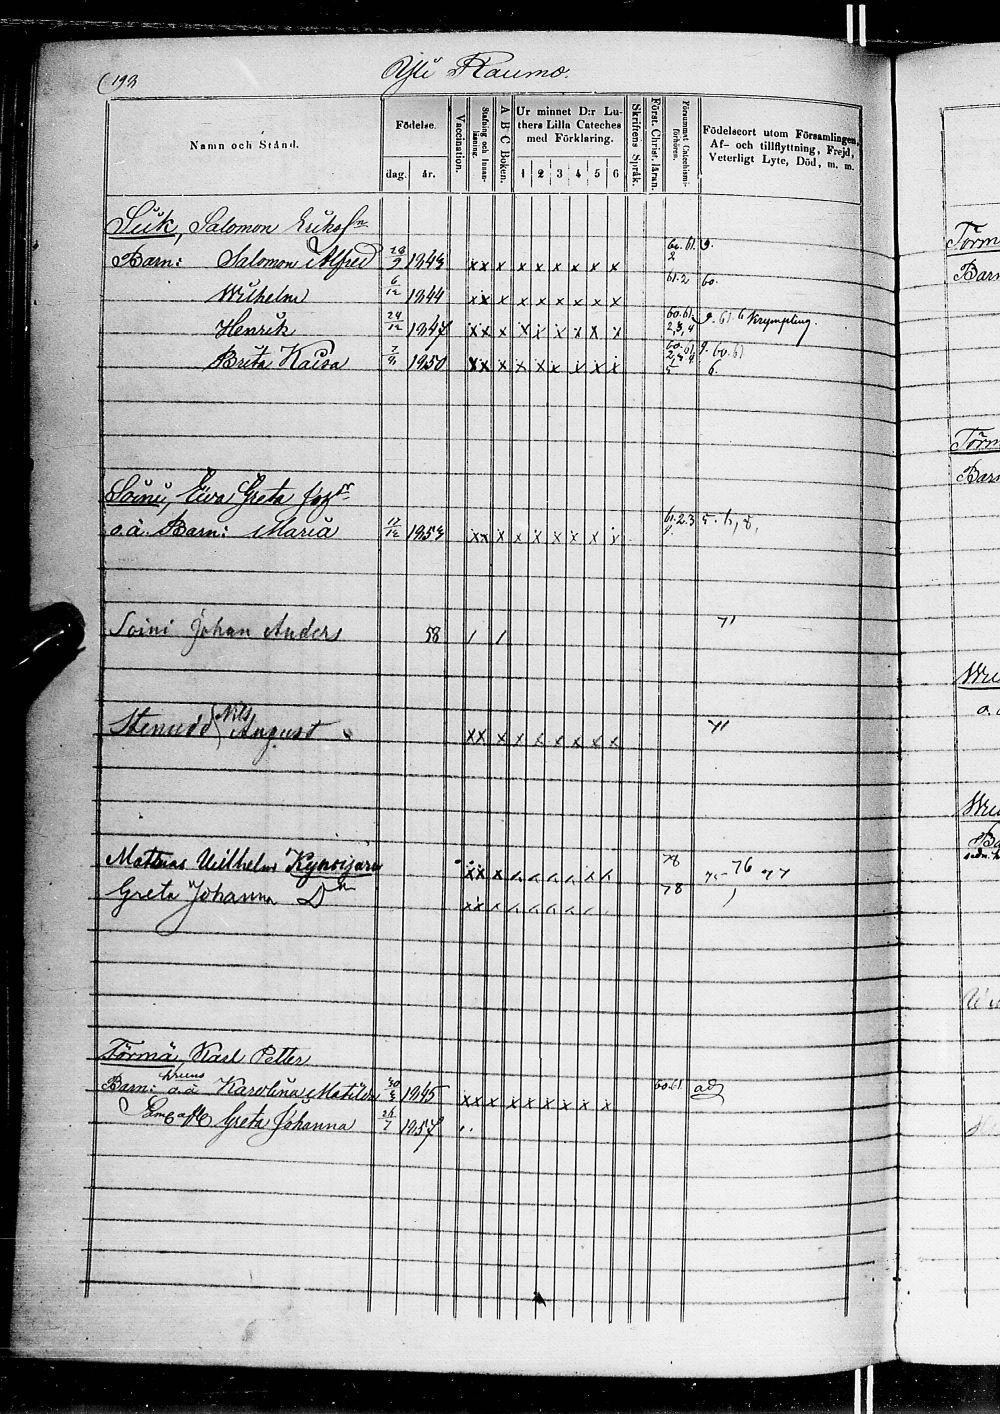 193
Yli Raumo.
Namn och Stånd.
Födelse.
dag. år.
Vaccination.
Stafning och Innanläsning.
A B C Boken.
Ur minnet D:r Luthers Lilla Cateches med Förklaring.
1 2 3 4 5 6
Skriftens Språk.
Först. Christ. läran.
Försummat Catechismiförhören.
Födelseort utom Församlingen,
Af- och tillflyttning, Frejd,
Veterligt Lyte, Död, m. m.
Siik, Salomon Eriksson
Barn: Salomon Alfred 1843 x x x x x x x x x 60. 61. 2 9.
Wilhelm 6/12 1844 x x x x x x x x x 61. 2 60.
Henrik 24/12 1847 x x x x x x x x x 60. 61. 2, 3, 4 9. 61. 6 Krympling.
Brita Kaisa 1850 x x x x x x x x x 60. 61 5 9. 60. 61 6.
Soini, Ewa Greta
o.ä. Barn: Maria 1853 x x x x x x x x x 61. 2. 3
Soini Johan Anders 58 / / 71
Nils
August x x x x x x x x x 71
Mattias Wilhelm x x x 78 76 77
Greta Johanna Dn x x 78
Törmä, Karl Petter
Barn: o.ä Karolina Matilda 1845 x x x x x x x x x 60. 61
Greta Johanna 26/7 1857
Törm
Barn
Törm
Barn